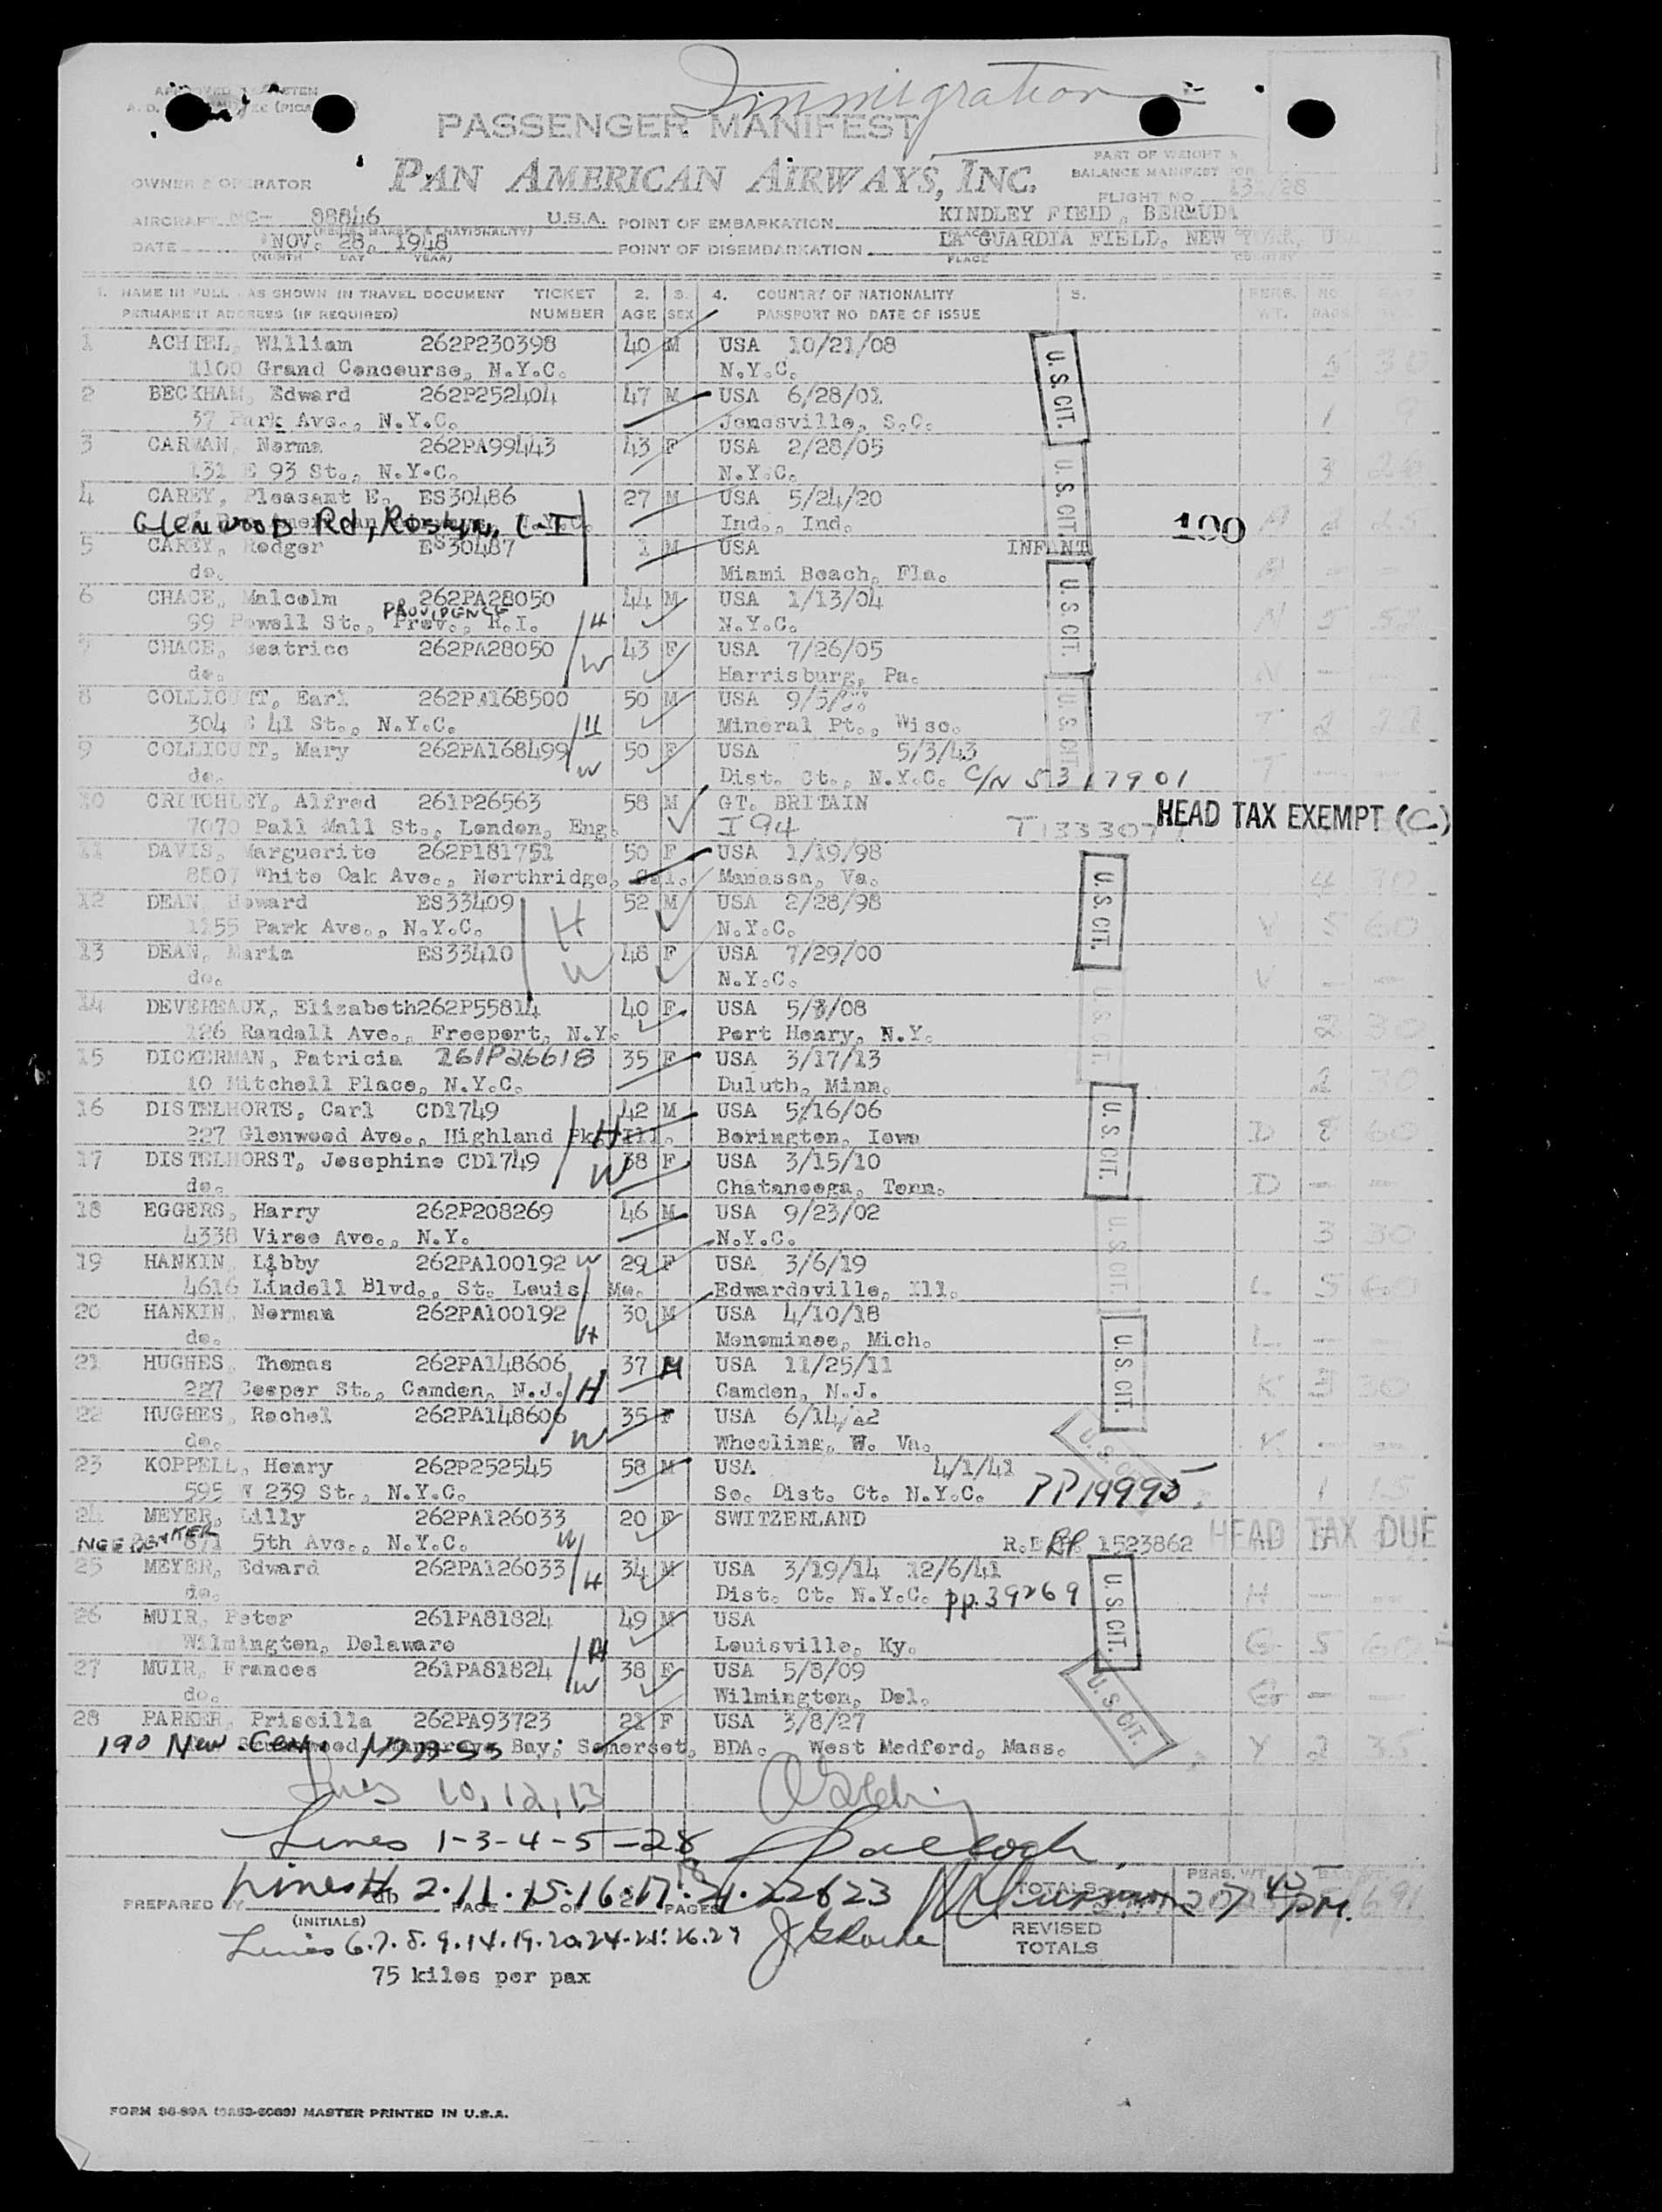 Immigration
PASSENGER MANIFEST
PAN AMERICAN AIRWAYS, INC.
PART OF WEIGHT &
BALANCE MANIFEST FOR
OWNER & OPERATOR
FLIGHT NO. 131/28
AIRCRAFT NC- 88846 U.S.A. POINT OF EMBARKATION KINDLEY FIELD, BERMUDA
DATE NOV. 28, 1948 POINT OF DISEMBARKATION LA GUARDIA FIELD, NEW YORK, USA
(MONTH DAY YEAR) PLACE COUNTRY
1. NAME IN FULL AS SHOWN IN TRAVEL DOCUMENT TICKET 2. 3. 4. COUNTRY OF NATIONALITY 5. PERS. NO.
PERMANENT ADDRESS (IF REQUIRED) NUMBER AGE SEX PASSPORT NO DATE OF ISSUE WT. BAGS
1 William 262P230398 40 M USA 10/21/08 30
1100 Grand Concourse, N.Y.C. N.Y.C.
2 BECKHAM, Edward 262P252404 47 M USA 6/28/01 1 9
37 Park Ave., N.Y.C. Jonesville, S.C.
3 CARMAN, Norma 262PA99443 43 F USA 2/28/05 3 26
131 E 93 St., N.Y.C. N.Y.C.
4 CAREY, Pleasant E. ES30486 27 M USA 5/24/20 100
Glenwood Rd, Roslyn, L-I Ind., Ind.
5 CAREY, Rodger ES30487 1 M USA INFANT
do. Miami Beach, Fla.
6 CHACE, Malcolm 262PA28050 44 M USA 1/13/04 N 5
99 Powell St., Prov., R.I. PROVIDENCE H N.Y.C.
7 CHACE, Beatrice 262PA28050 43 F USA 7/26/05 N — —
do. W Harrisburg, Pa.
8 COLLICUTT, Earl 262PA168500 50 M USA T 2
304 E 41 St., N.Y.C. H Mineral Pt., Wisc.
9 COLLICUTT, Mary 262PA168499 50 F USA 5/3/43 T — —
do. W Dist. Ct., N.Y.C. C/N 5317901
10 CRITCHLEY, Alfred 261P26563 58 M GT. BRITAIN HEAD TAX EXEMPT (C)
7070 Pall Mall St., London, Eng. I 94
11 DAVIS, Marguerite 262P181751 50 F USA 1/19/98 4 30
8507 White Oak Ave., Northridge, Cal. Manassa, Va.
12 DEAN, Howard ES33409 H 52 M USA 2/28/98 V 5 60
1155 Park Ave., N.Y.C. N.Y.C.
13 DEAN, Maria ES33410 W 48 F USA 7/29/00 V — —
do. N.Y.C.
14 DEVEREAUX, Elizabeth 262P55814 40 F USA 5/3/08 2 30
126 Randall Ave., Freeport, N.Y. Port Henry, N.Y.
15 DICKERMAN, Patricia 261P26618 35 F USA 3/17/13 2 30
10 Mitchell Place, N.Y.C. Duluth, Minn.
16 DISTELHORTS, Carl CD1749 42 M USA 5/16/06 D 8 60
227 Glenwood Ave., Highland Pk, Ill. H Borington, Iowa
17 DISTELHORST, Josephine CD1749 38 F USA 3/15/10 D — —
do. W Chatanooga, Tenn.
18 EGGERS, Harry 262P208269 46 M USA 9/23/02 3 30
4338 Viree Ave., N.Y. N.Y.C.
19 HANKIN, Libby 262PA100192 W 29 F USA 3/6/19 L 5 60
4616 Lindell Blvd., St. Louis, Mo. Edwardsville, Ill.
20 HANKIN, Norman 262PA100192 30 M USA 4/10/18 L — —
do. H Menominee, Mich.
21 HUGHES, Thomas 262PA148606 37 M USA 11/25/11 K 3 30
227 Cooper St., Camden, N.J. H Camden, N.J.
22 HUGHES, Rachel 262PA148606 35 F USA 6/14/12 K — —
do. W Wheeling, W. Va.
23 KOPPELL, Henry 262P252545 58 M USA 4/1/41 1 15
595 W 239 St., N.Y.C. So. Dist. Ct. N.Y.C. PP19995
24 MEYER, Lilly 262PA126033 20 F SWITZERLAND HEAD TAX DUE
NEE BANKER 871 5th Ave., N.Y.C. W 1523862
25 MEYER, Edward 262PA126033 34 M USA 3/19/14 12/6/41 H — —
do. H Dist. Ct. N.Y.C. pp.39269
26 MUIR, Peter 261PA81824 49 M USA G 5 60
Wilmington, Delaware H Louisville, Ky.
27 MUIR, Frances 261PA81824 38 F USA 5/8/09 G — —
do. W Wilmington, Del.
28 PARKER, Priscilla 262PA93723 21 F USA 3/8/27 Y 2 35
190 New Bay, Somerset, BDA. West Medford, Mass.
U.S.CIT.
U.S.CIT.
U.S.CIT.
U.S.CIT.
U.S.CIT.
U.S.CIT.
U.S.CIT.
U.S.CIT.
U.S.CIT.
U.S.CIT.
U.S.CIT.
U.S.CIT.
Lines 10, 12, 13
Lines 1-3-4-5-28
Lines 2.11.15.16.17.18.21.22&23
PREPARED BY PAGE OF PAGES TOTALS PERS. WT.
(INITIALS) REVISED
TOTALS
Lines 6.7.8.9.14.19.20.24.25.26.27
75 kilos per pax
FORM 36-89A MASTER PRINTED IN U.S.A.